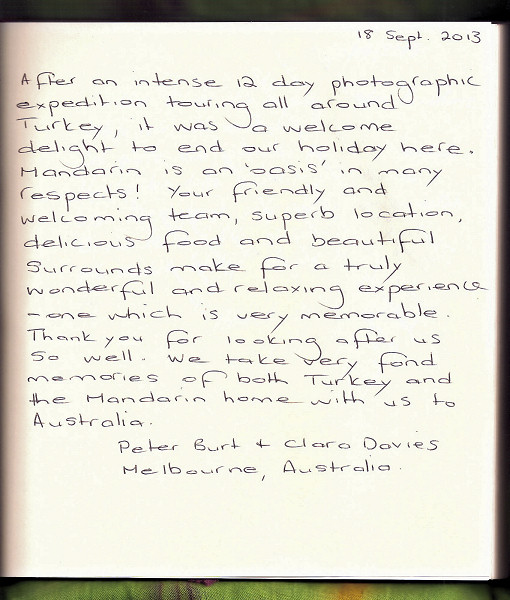 18 Sept. 2013
After an intense 12 day photographic
expedition touring all around
Turkey, it was a welcome
delight to end our holiday here.
Mandarin is an 'oasis' in many
respects! Your friendly and
welcoming team, superb location,
delicious food and beautiful
surrounds make for a truly
wonderful and relaxing experience
- one which is very memorable.
Thank you for looking after us
so well. We take very fond
memories of both Turkey and
the Mandarin home with us to
Australia.
Peter Burt + Clara Davies
Melbourne, Australia.